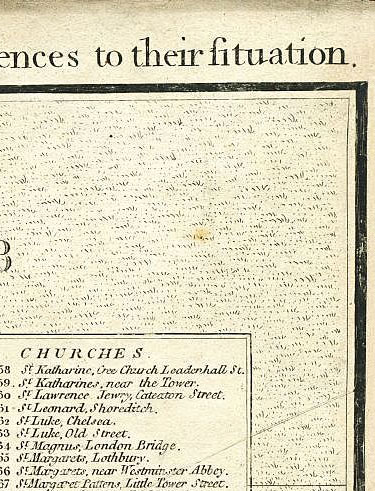 ences to their ſituation.
B
CHURCHES.
58 St. Katharine, Cree Church Leadenhall St.
59. St. Katharines, near the Tower.
60 St. Lawrence Jewry, Cateaton Street.
61 St. Leonard, Shoreditch.
62 St. Luke, Chelsea.
63 St. Luke, Old Street.
64 St. Magnus, London Bridge.
65 St. Margarets, Lothbury.
66 St. Margarets, near Westminster Abbey.
67 St. Margaret Pattens, Little Tower Street.